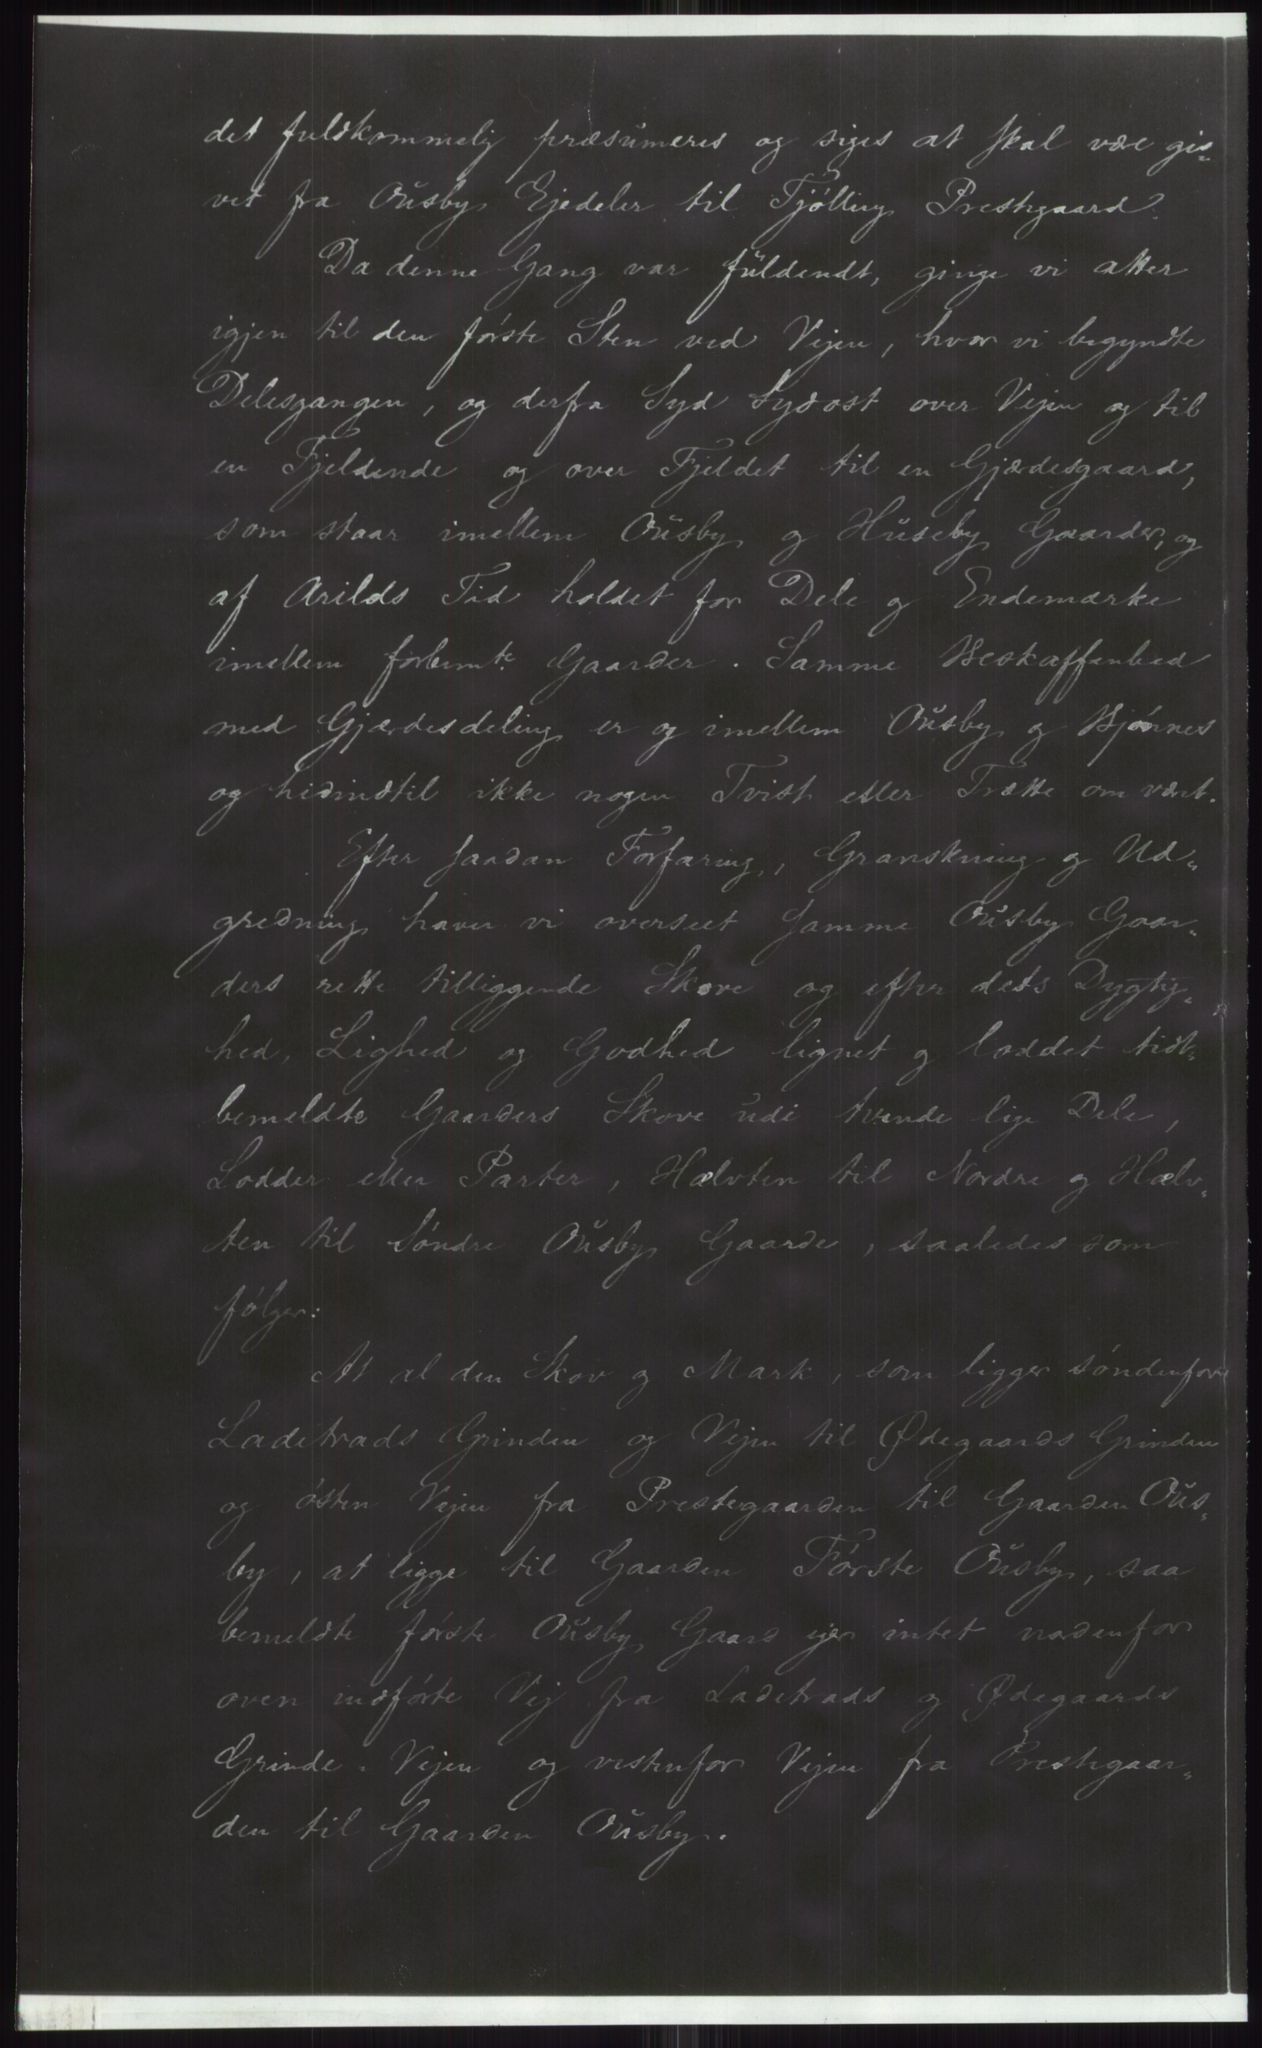 det fuldkommelig præsumeres og siges at skal være gi-
vet fra Oŭsby Ejedeler til Tjølling Prestegaard.
Da denne Gang var fŭldendt, ginge vi atter
igjen til den første Sten ved Vejen, hvor vi begyndte
Delesgangen, og derfra Syd Sydost over Vejen og til
en Fjeldende og over Fjeldet til en Gjærdesgaard,
som staar imellem Oŭsby og Hŭseby Gaarder, og
af Arilds Tid holdet for Dele og Endemærke
imellem forbemte Gaarder. Samme Beskaffenhed
med Gjærdesdeling er og imellem Oŭsby og Bjønnes
og hidindtil ikke nogen Tvist eller Trætte om været.
Efter saadan Forfaring, Granskning og Ud-
gredning haver vi overseet samme Oŭsby Gaar-
ders rette tilliggende Skove og efter dets Dygtig-
hed, Lighed og Godhed lignet og loddet tidt-
bemeldte Gaarders Skove udi tvende lige Dele,
Lodder eller Parter, Hælvten til Nordre og Hælv-
ten til Søndre Oŭsby Gaarde, saaledes som
følger:
At al den Skov og Mark, som ligger søndenfore
Ladetrads Grinden og Vejen til Ødegaards Grinden
og østen Vejen fra Prestegaarden til Gaarden Oŭs-
by, at ligge til Gaarden Første Oŭsby, saa
bemeldte første Oŭsby Gaard ejer intet nordenfor
oven indførte Vej fra Ladetrads og Ødegaards
Grinde-Vejen og vestenfor Vejen fra Prestegaar-
den til Gaarden Oŭsby.